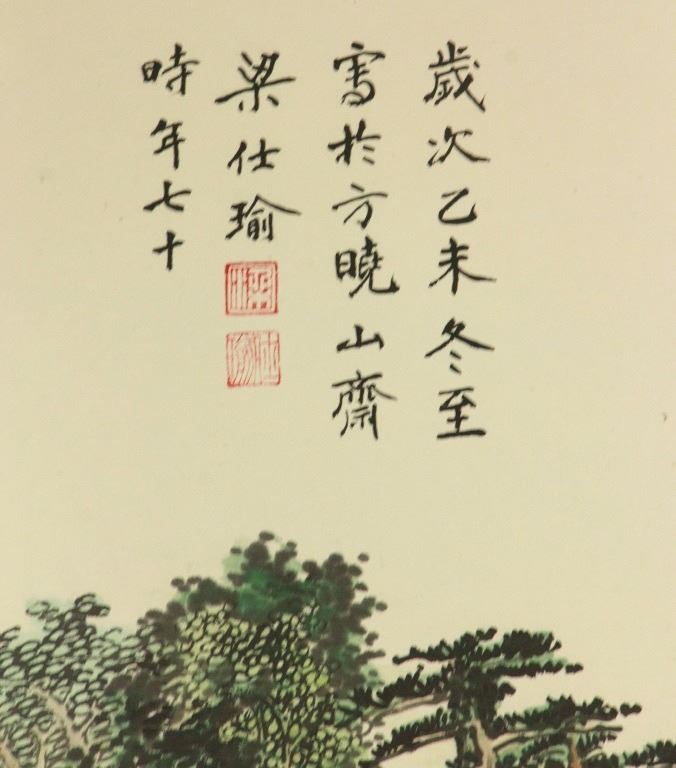 歲次乙未冬至
寫於方曉山齋
梁仕瑜
時年七十